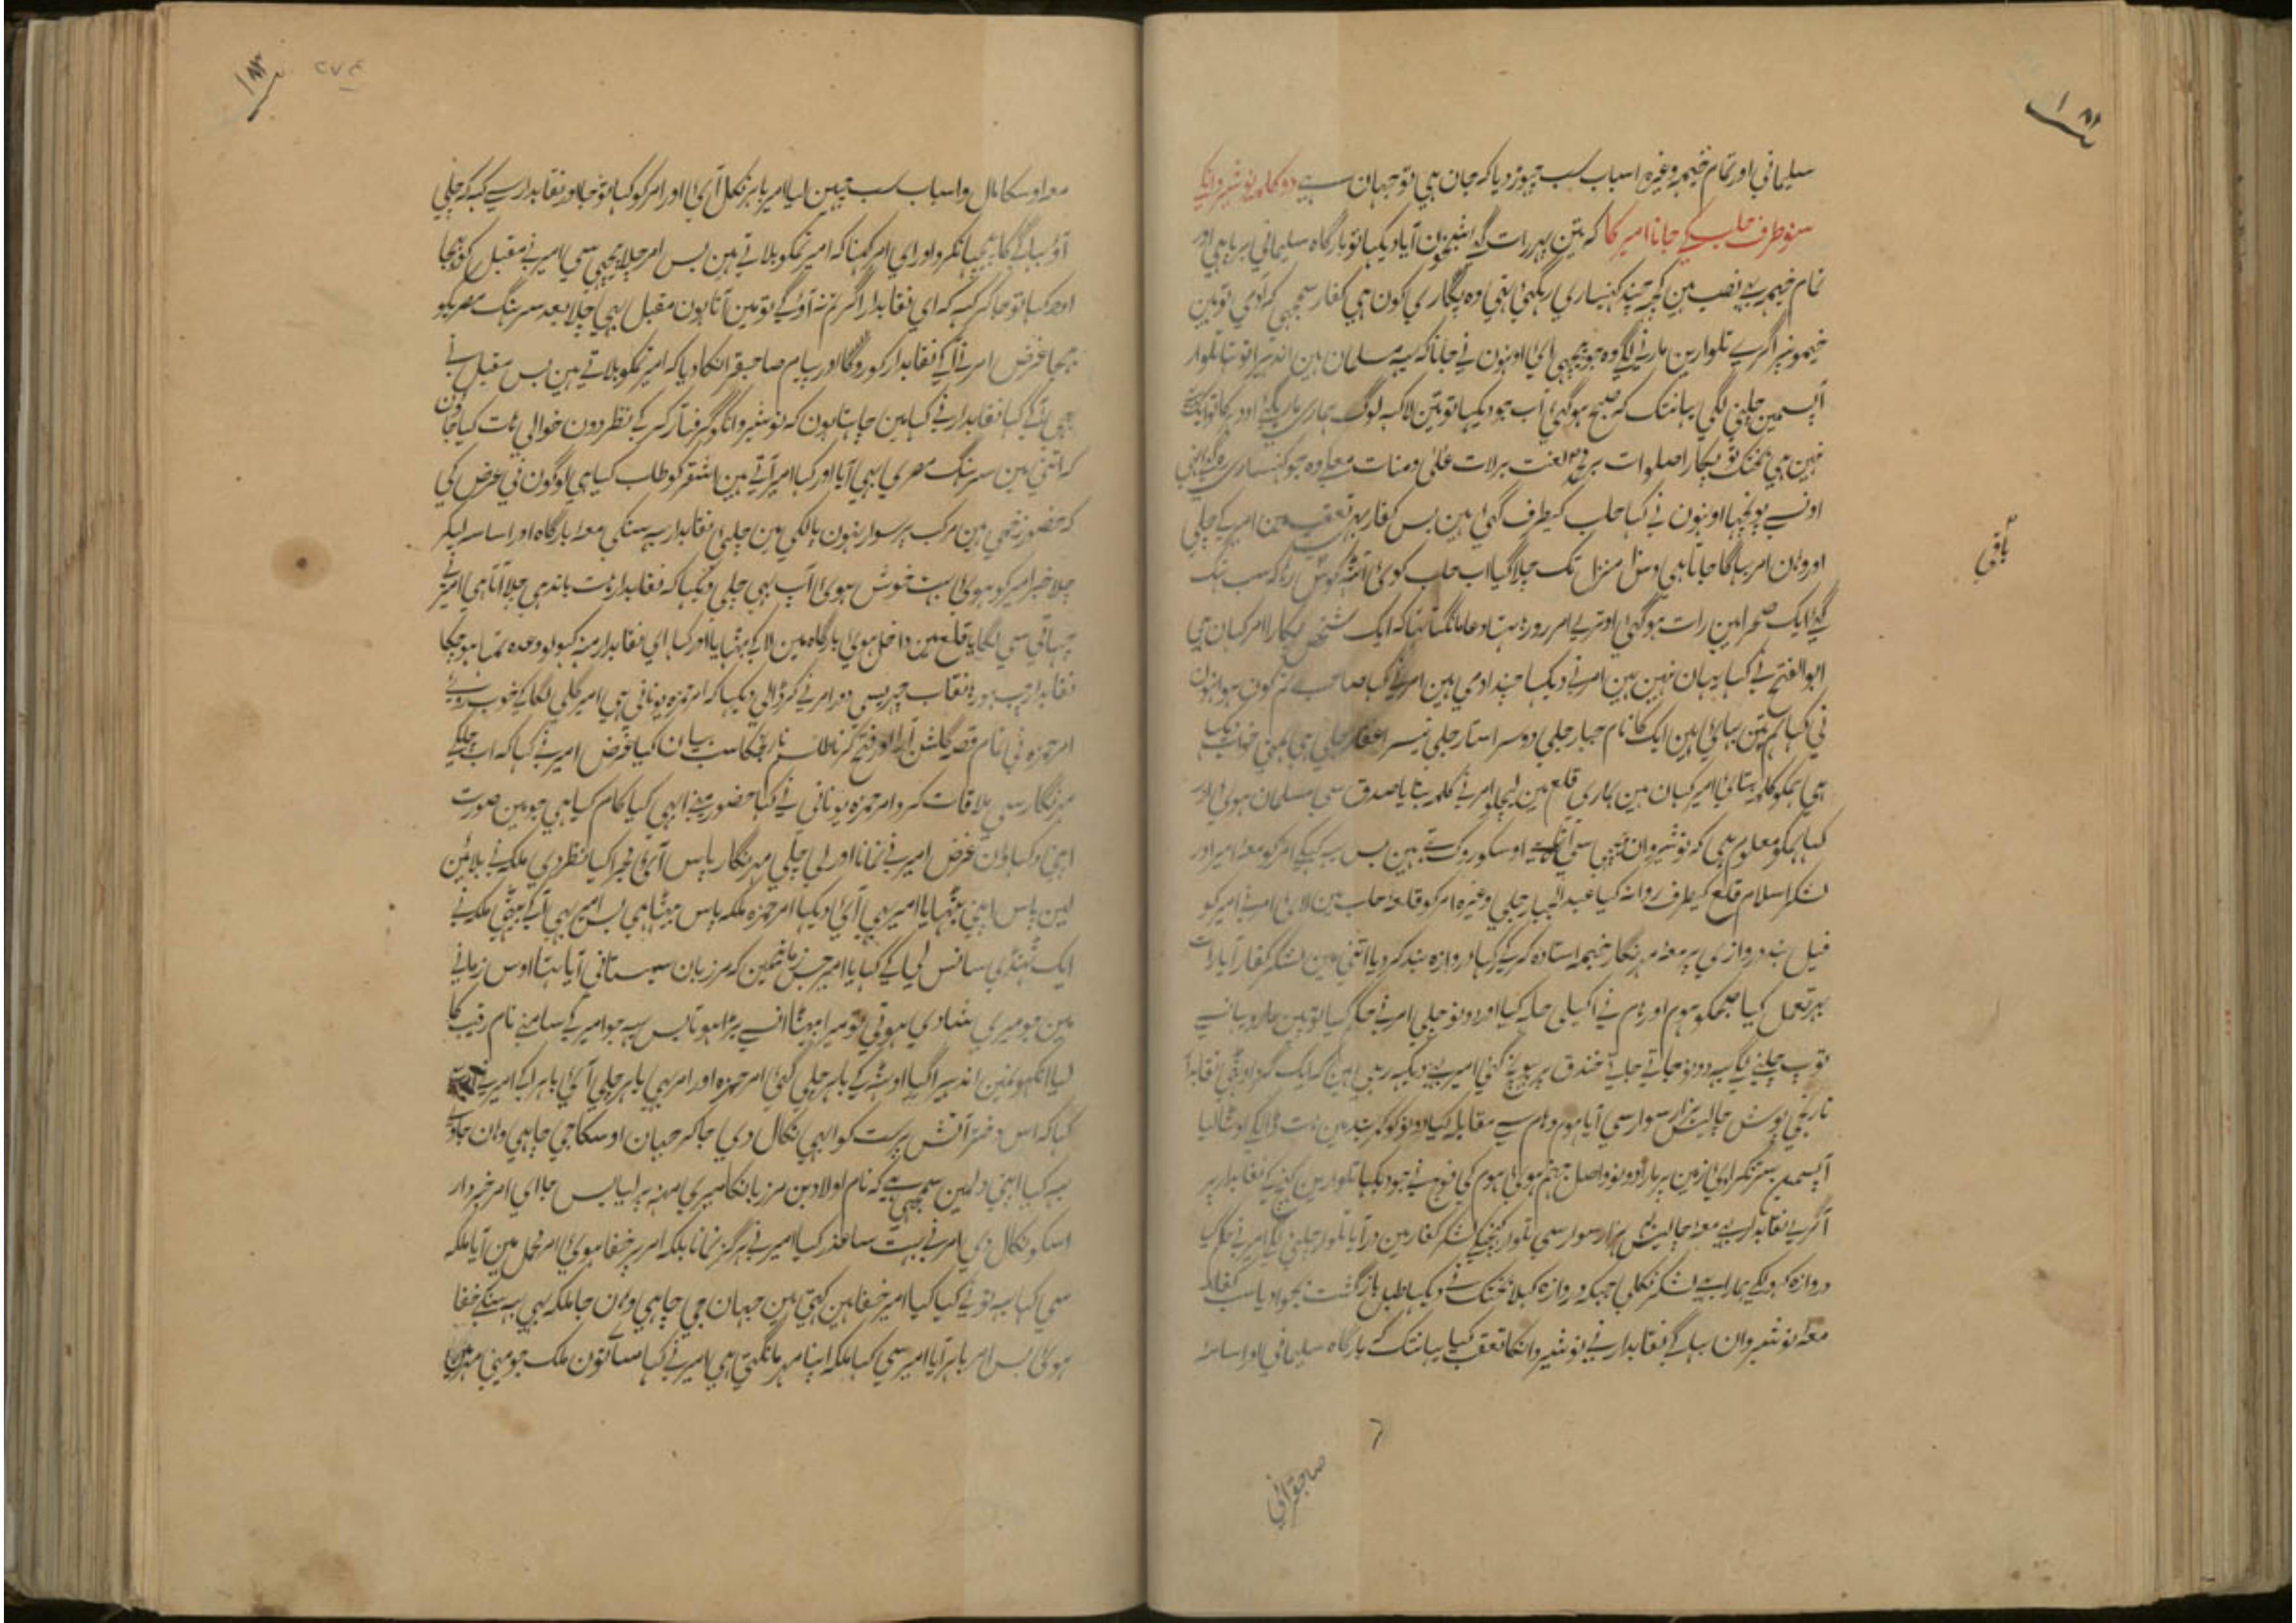 سلیمانی اور تمام خیمہ وغیرہ اسباب سب چہوڑ دیا کہ جان ہی تو جہان ہے دو کلمہ نوشیروانکے
سنو طرف حلب کے جانا امیر کا کہ تین پہر رات گئے شبخون آیا دیکہا تو بارگاہ سلیمانی برپا ہی اور
تمام خیمہ بہی نصب ہین کچہ چند کہنساری رہگئی تہی وہ پکاری کون ہی کفار سمجہی کہ آدمی تو ہین
خیمونپر اگرے تلوارین مارنے لگے وہ جو پیچہی آئی اونہون نے جانا کہ یہ مسلمان ہین اندہیرا تو تہا تلوار
آپسمین چلنی لگی یہانتک کہ صبح ہو گئی اب جو دیکہا تو تین لاکہہ لوگ ہماری مارے گئے اودہر کا تو ایک
نہین ہی بختک تو پکارا صلوات بر محمد لعنت برلات علی و منات معلے وہ جو کہنساری رہگئی تہی
اونسے پوچہا اونہون نے کہا حلب کیطرف گئی ہین بس کفار بہی تعقب مین امیر کے چلی
اور وہان امر بہاگا جاتا ہی دس منزل تک چلا گیا اب حلب کوئی آٹہہ کوس رہا کہ سب تہک
گئے ایک صحرا مین رات ہو گئی اوترے امر رو رہا تہا دعا مانگتا تہا کہ ایک شخص پکارا امر کہان ہی
ابوالفتح نے کہا یہان نہین ہین امر نے دیکہا چند آدمی ہین امر نے کہا صاحب تم کون ہو اونہون
نی کہا ہم تین بہائی ہین ایک کا نام جبار حلبی دوسرا ستار حلبی تیسرا غفار حلبی ہی ہمنی خواب دیکہا
ہی ہمکو کلمہ بتائی امیر کہان ہین ہماری قلع مین لیچلو امر نے کلمہ بتایا صدق سی مسلمان ہوئی اور
کہا ہمکو معلوم ہی کہ نوشیروان پیچہی سی آتا ہے اوسکو روکتے ہین بس یہ کہکے امر کو معہ امیر اور
لشکر اسلام قلع کیطرف روانہ کیا عبدالجبار حلبی وغیرہ امر کو قلعہ حلب مین لائی امر نے امیر کو
فیل بند دروازی پر معہ مہرنگار خیمہ استادہ کر کے رکہا دروازہ بند کر دیا اتنی مین لشکر کفار آیا رات
بہر تعمل کیا صبحکو ہوم اور دام نے اکیلی حملہ کیا اور دونو چلی امر نے حکم کیا توپین مارو یہانسے
توپ چلنے لگی یہ دونو جاتے جاتے خندق پر پہونچ گئی امیر بہی دیکہہ رہی ہین کہ ایک گرد اوٹہی نقابدار
نارنجی پوش چالیس ہزار سوار سی آیا ہوم و دام سے مقابلہ کیا دونو کو کمربند مین ہات ڈالکے اوٹہا لیا
آپسمین سر ٹکرائی زمین پر مارا دونو واصل جہنم ہوئی ہوم کی فوج نے جو دیکہا تلوارین کہنچکے نقابدار پر
آگرے نقابدار بہی معہ چالیس ہزار سوار سی تلوار کہنچکے لشکر کفار مین در آیا تلوار چلنی لگی امیر نے حکم کیا
دروازہ کہولکے ہمارا بہی لشکر نکلی جبکہ دروازہ کہلا بختک نے دیکہا طبل بازگشت بجوا دیا سب کفار
معہ نوشیروان بہاگے نقابدار نے نوشیروانکا تعقب کیا یہانتک کہ بارگاہ سلیمانی اور اسامہ
باقی
صاحبقرانی
معہ اوسکا مال و اسباب سب چہین لیا امیر باہر نکل آئی اور امر کو کہا تو جا اور نقابدار سے کہہ کہ چلی
آؤ بہاگے کا پیچہا نکرو اور ای امر کہنا کہ امیر تمکو بلاتے ہین بس امر چلا پیچہی سی امیر نے مقبل کو بہیجا
اور کہا تو جا کر کہہ کہ ای نقابدار اگر تم نہ آؤ گے تو مین آتا ہون مقبل بہی چلا بعد سرہنگ مصریکو
بہیجا غرض امر نے آکے نقابدار کو روکا اور پیام صاحبقرانکا دیا کہ امیر تمکو بلاتے ہین بس مقبل نے
بہی آکے کہا نقابدار نے کہا مین چاہتا ہون کہ نوشیروانکو گرفتار کر کے نظر دون خوالی ہات کیا جاؤن
کہ اتنی مین سرہنگ مصری بہی آیا اور کہا امیر آتے ہین اشقر کو طلب کیا ہی لوگون نی عرض کی
کہ حضور زخمی ہین مرکب پر سوار نہون پالکی مین چلی نقابدار یہ سنکی معہ بارگاہ اور اسامہ لیکر
چلا خبر امیر کو ہوئی بہت خوش ہوئی آپ بہی چلی دیکہا کہ نقابدار ہات باندہی چلا آتا ہی امیر نے
چہاتی سی لگایا قلع مین داخل ہوئی بارگاہ مین لا کے بٹہایا اور کہا ای نقابدار منہ کہولو وعدہ تمام ہو چکا
نقابدار چپ ہو رہا نقاب چہریسی دور امر نے کر ڈالی دیکہا کہ امر حمزہ یونانی ہی امیر گلی لگا کے خوب روئے
امر حمزہ نی تمام قصہ گلشن آرا اور فتح کرنا طلسم نارنجکا سب بیان کیا غرض امیر نے کہا کہ اب چلکے
مہرنگار سی ملاقات کرو امر حمزہ یونانی نے کہا حضور مینے ابہی کیا کام کیا ہی جو مین صورت
اپنی دکہاؤن غرض امیر نے نمانا اور لی چلی مہرنگار پاس آئی مجرا کیا نظر دی ملکہ نے بلائین
لین پاس اپنی بٹہایا امیر بہی آئی دیکہا امر حمزہ ملکہ پاس بیٹہا ہی بس امیر بہی آکے بیٹہی ملکہ نے
ایک ٹہنڈی سانس لی کے کہا یا امیر جس زمانیمین کہ مرزبان سیستانی آیا تہا اوس زمانے
مین جو میری شادی ہوتی تو میرا بیٹا اسے بڑا ہوتا بس یہ جو امیر کے سامنے نام رقیب کا
لیا انکہونمین اندہیرا آگیا اوٹہہ کے باہر چلی گئی امر حمزہ اور امر بہی باہر چلی آئی باہر آکے امیر نے
کہا کہ اس دختر آتش پرست کو ابہی نکال دی جا کر جہان اوسکا جی چاہی وہان جاوے
یہ کیا اپنی دلمین سمجہی ہے کہ نام اولاد بن مرزبانکا میری منہہ پر لیا بس جا ای امر خبردار
اسکو نکال دی امر نے بہت سا عذر کیا امیر نے ہرگز نمانا بلکہ امر پر خفا ہوئی امر محل مین آیا ملکہ
سی کہا یہ تونے کیا کیا امیر خفا ہین کہتی ہین جہان جی چاہی وہان جا ملکہ بہی یہ سنکے خفا
ہوئی بس امر باہر آیا امیر سی کہا ملکہ اپنا مہر مانگتی ہی امیر نے کہا ساتون ملک جو مینی